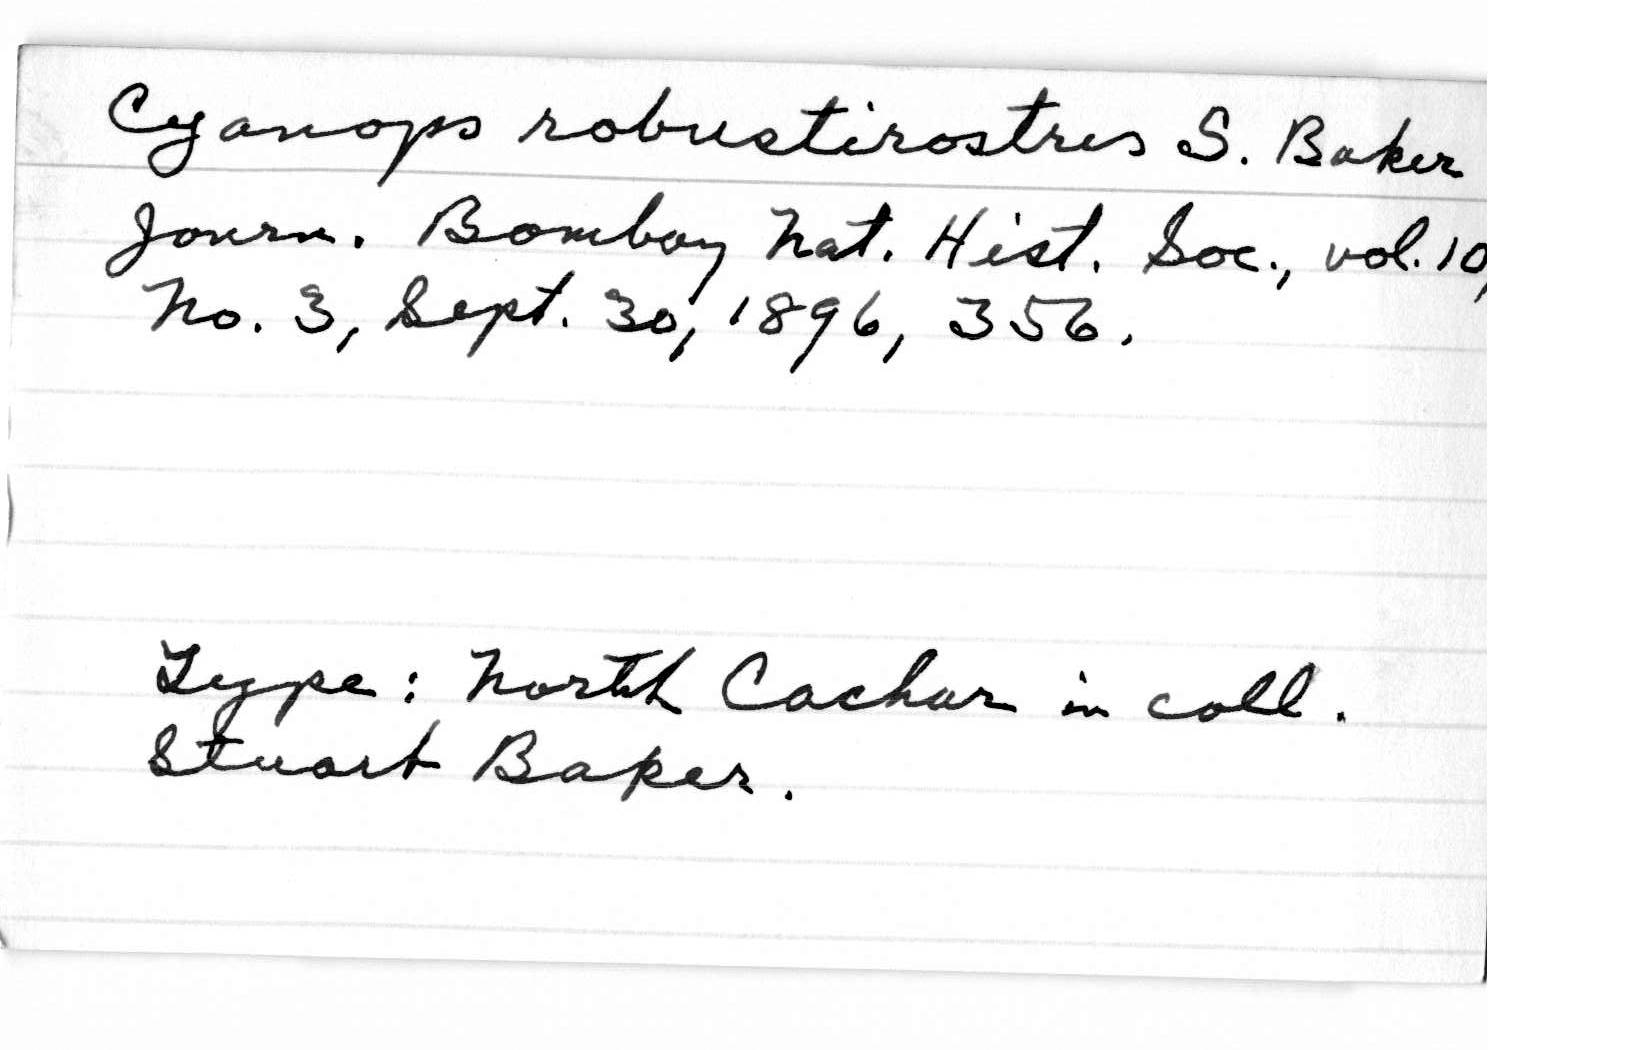 Cyanops robustirostris S. Baker
Journ. Bombay Nat. Hist. Soc., vol. 10,
No. 3, Sept. 30, 1896, 356.
Type: North Cachar in coll.
Stuart Baker.